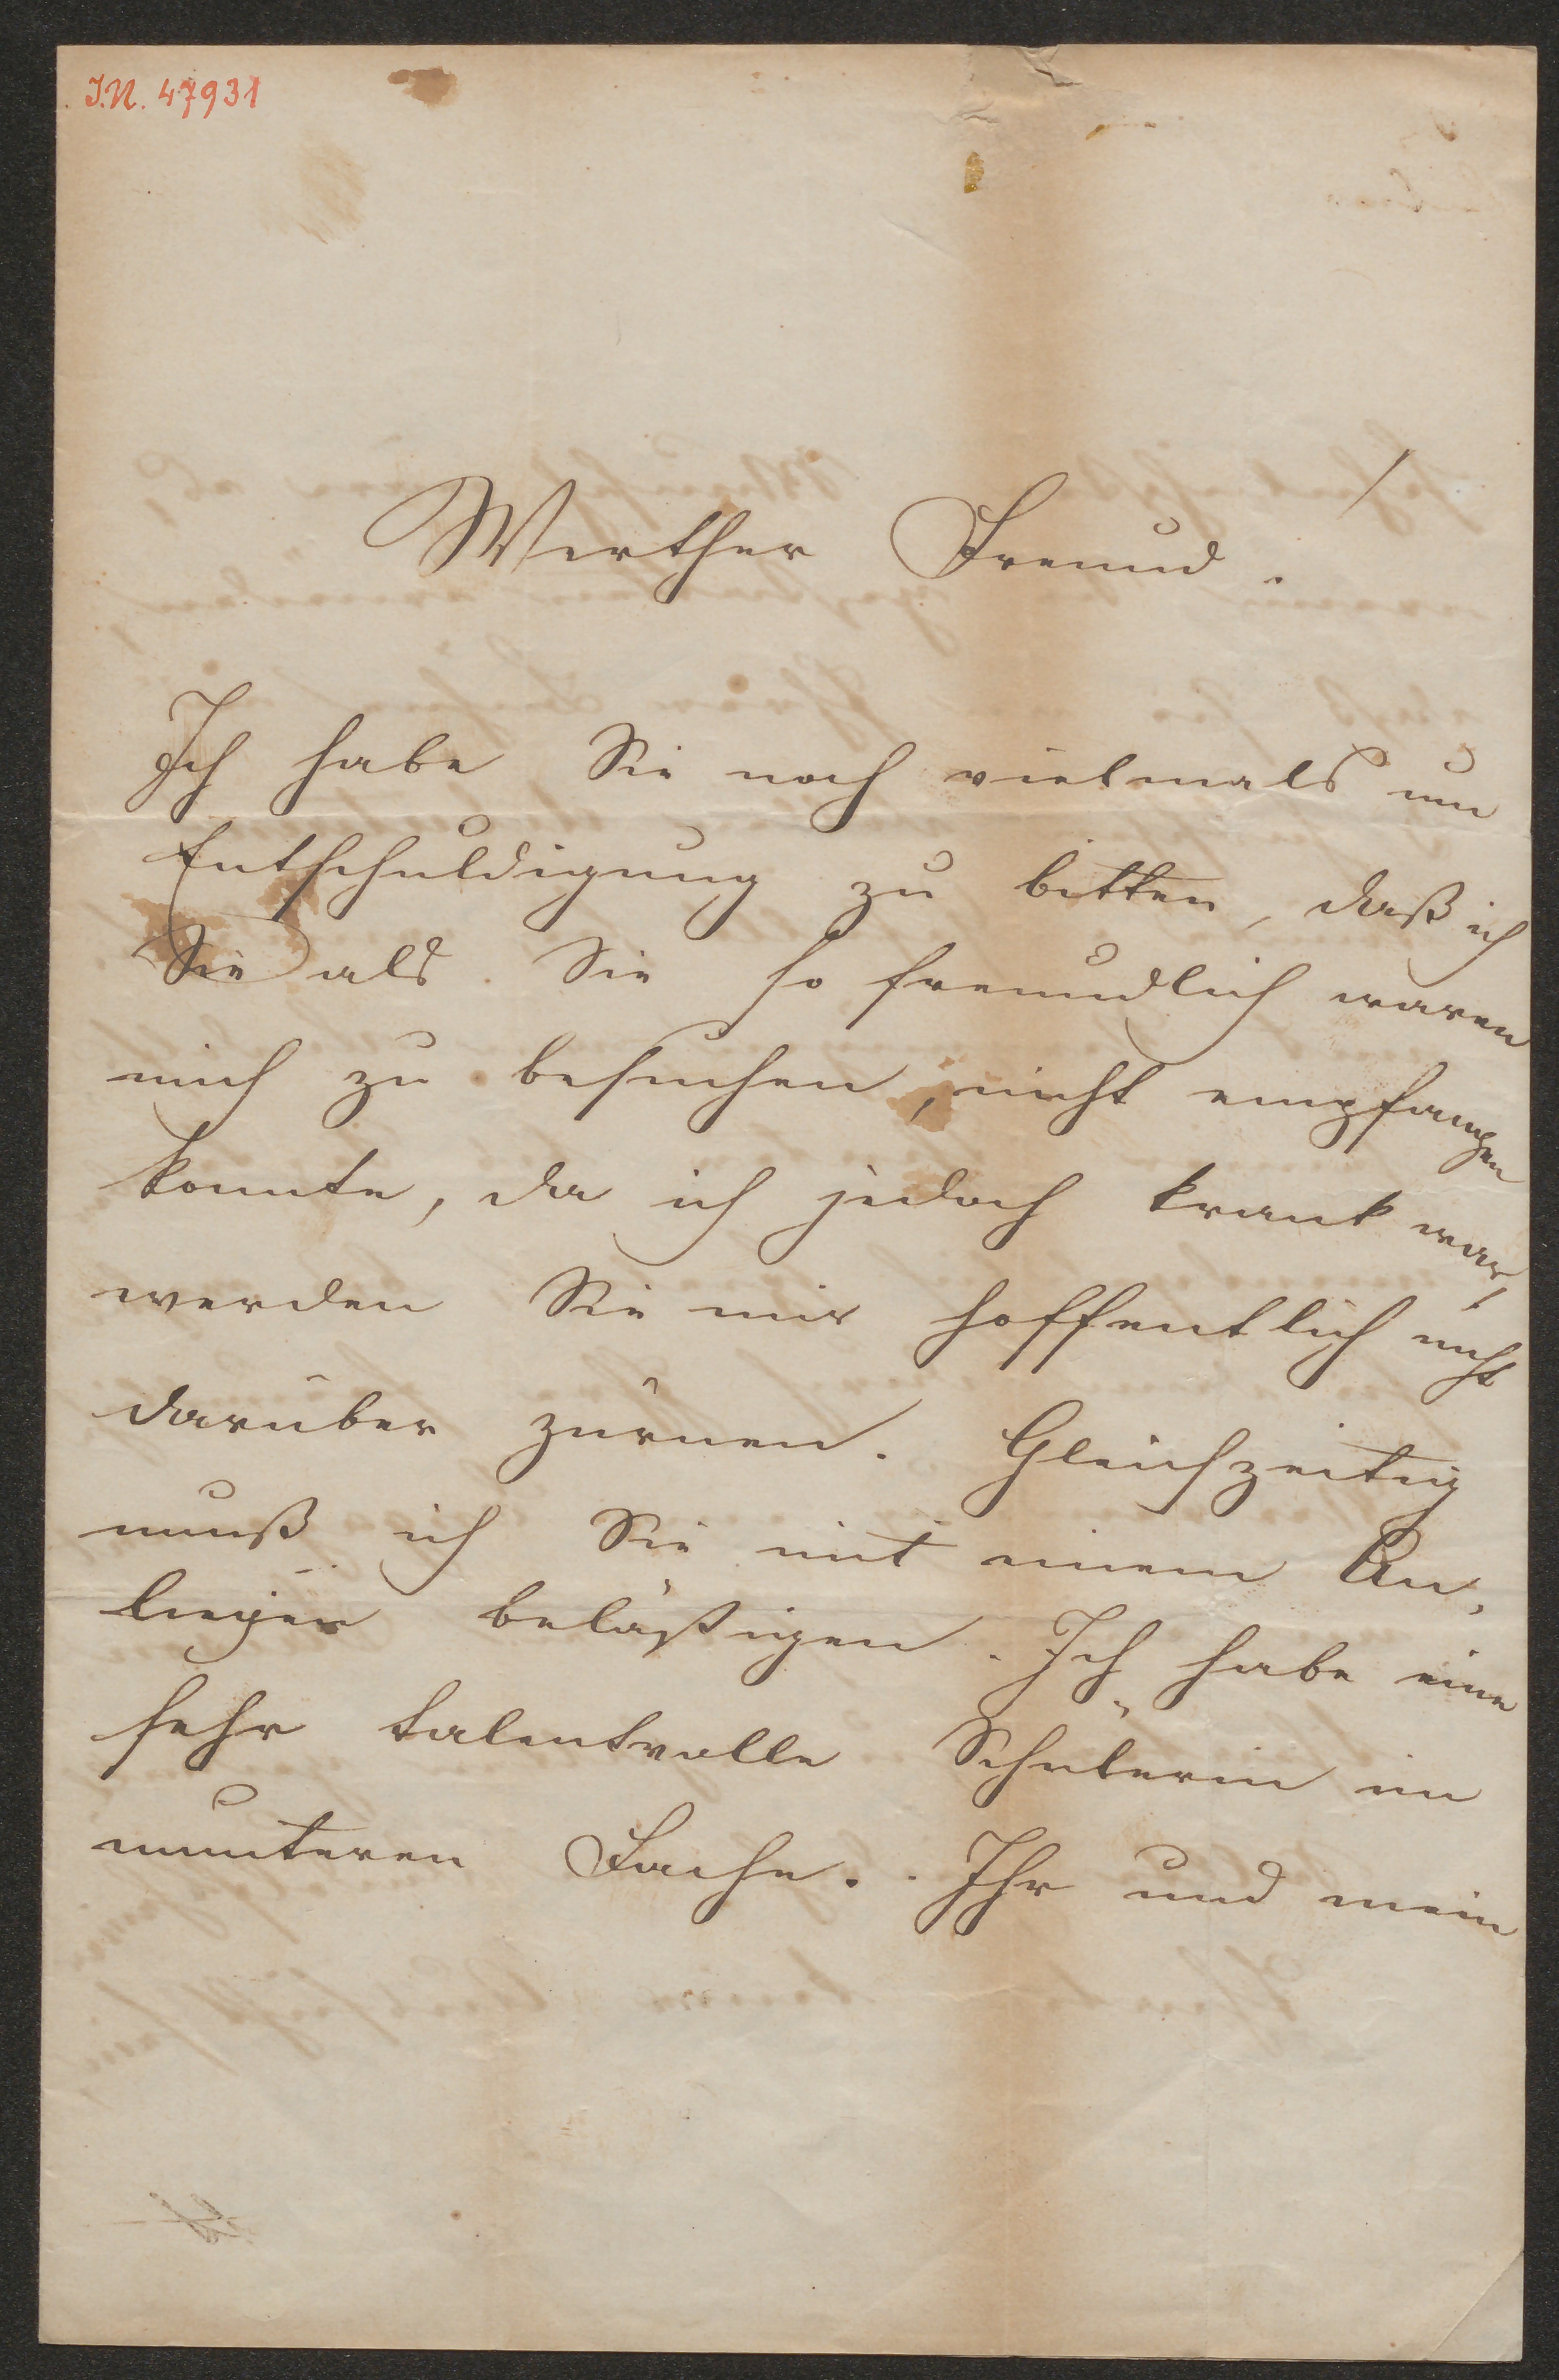 I.N. 47931
Werther Freund.
Ich habe Sie noch vielmals um
Entschuldigung zu bitten, daß ich
Sie als Sie so freundlich waren
mich zu besuchen, nicht empfangen
konnte, da ich jedoch krank war,
werden Sie mir hoffentlich nicht
darüber zürnen. Gleichzeitig
muß ich Sie mit einem An,
liegen belästigen. Ich habe eine
sehr talentvolle Schülerin im
munteren Fache. Ihr und mein